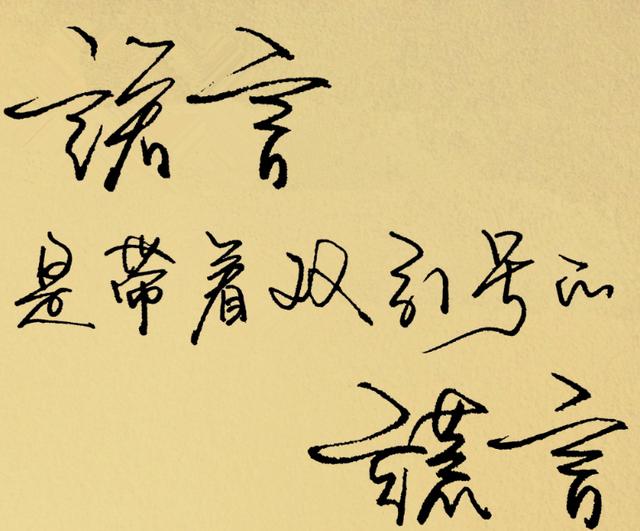 諾言
是带着双引号的
謊言